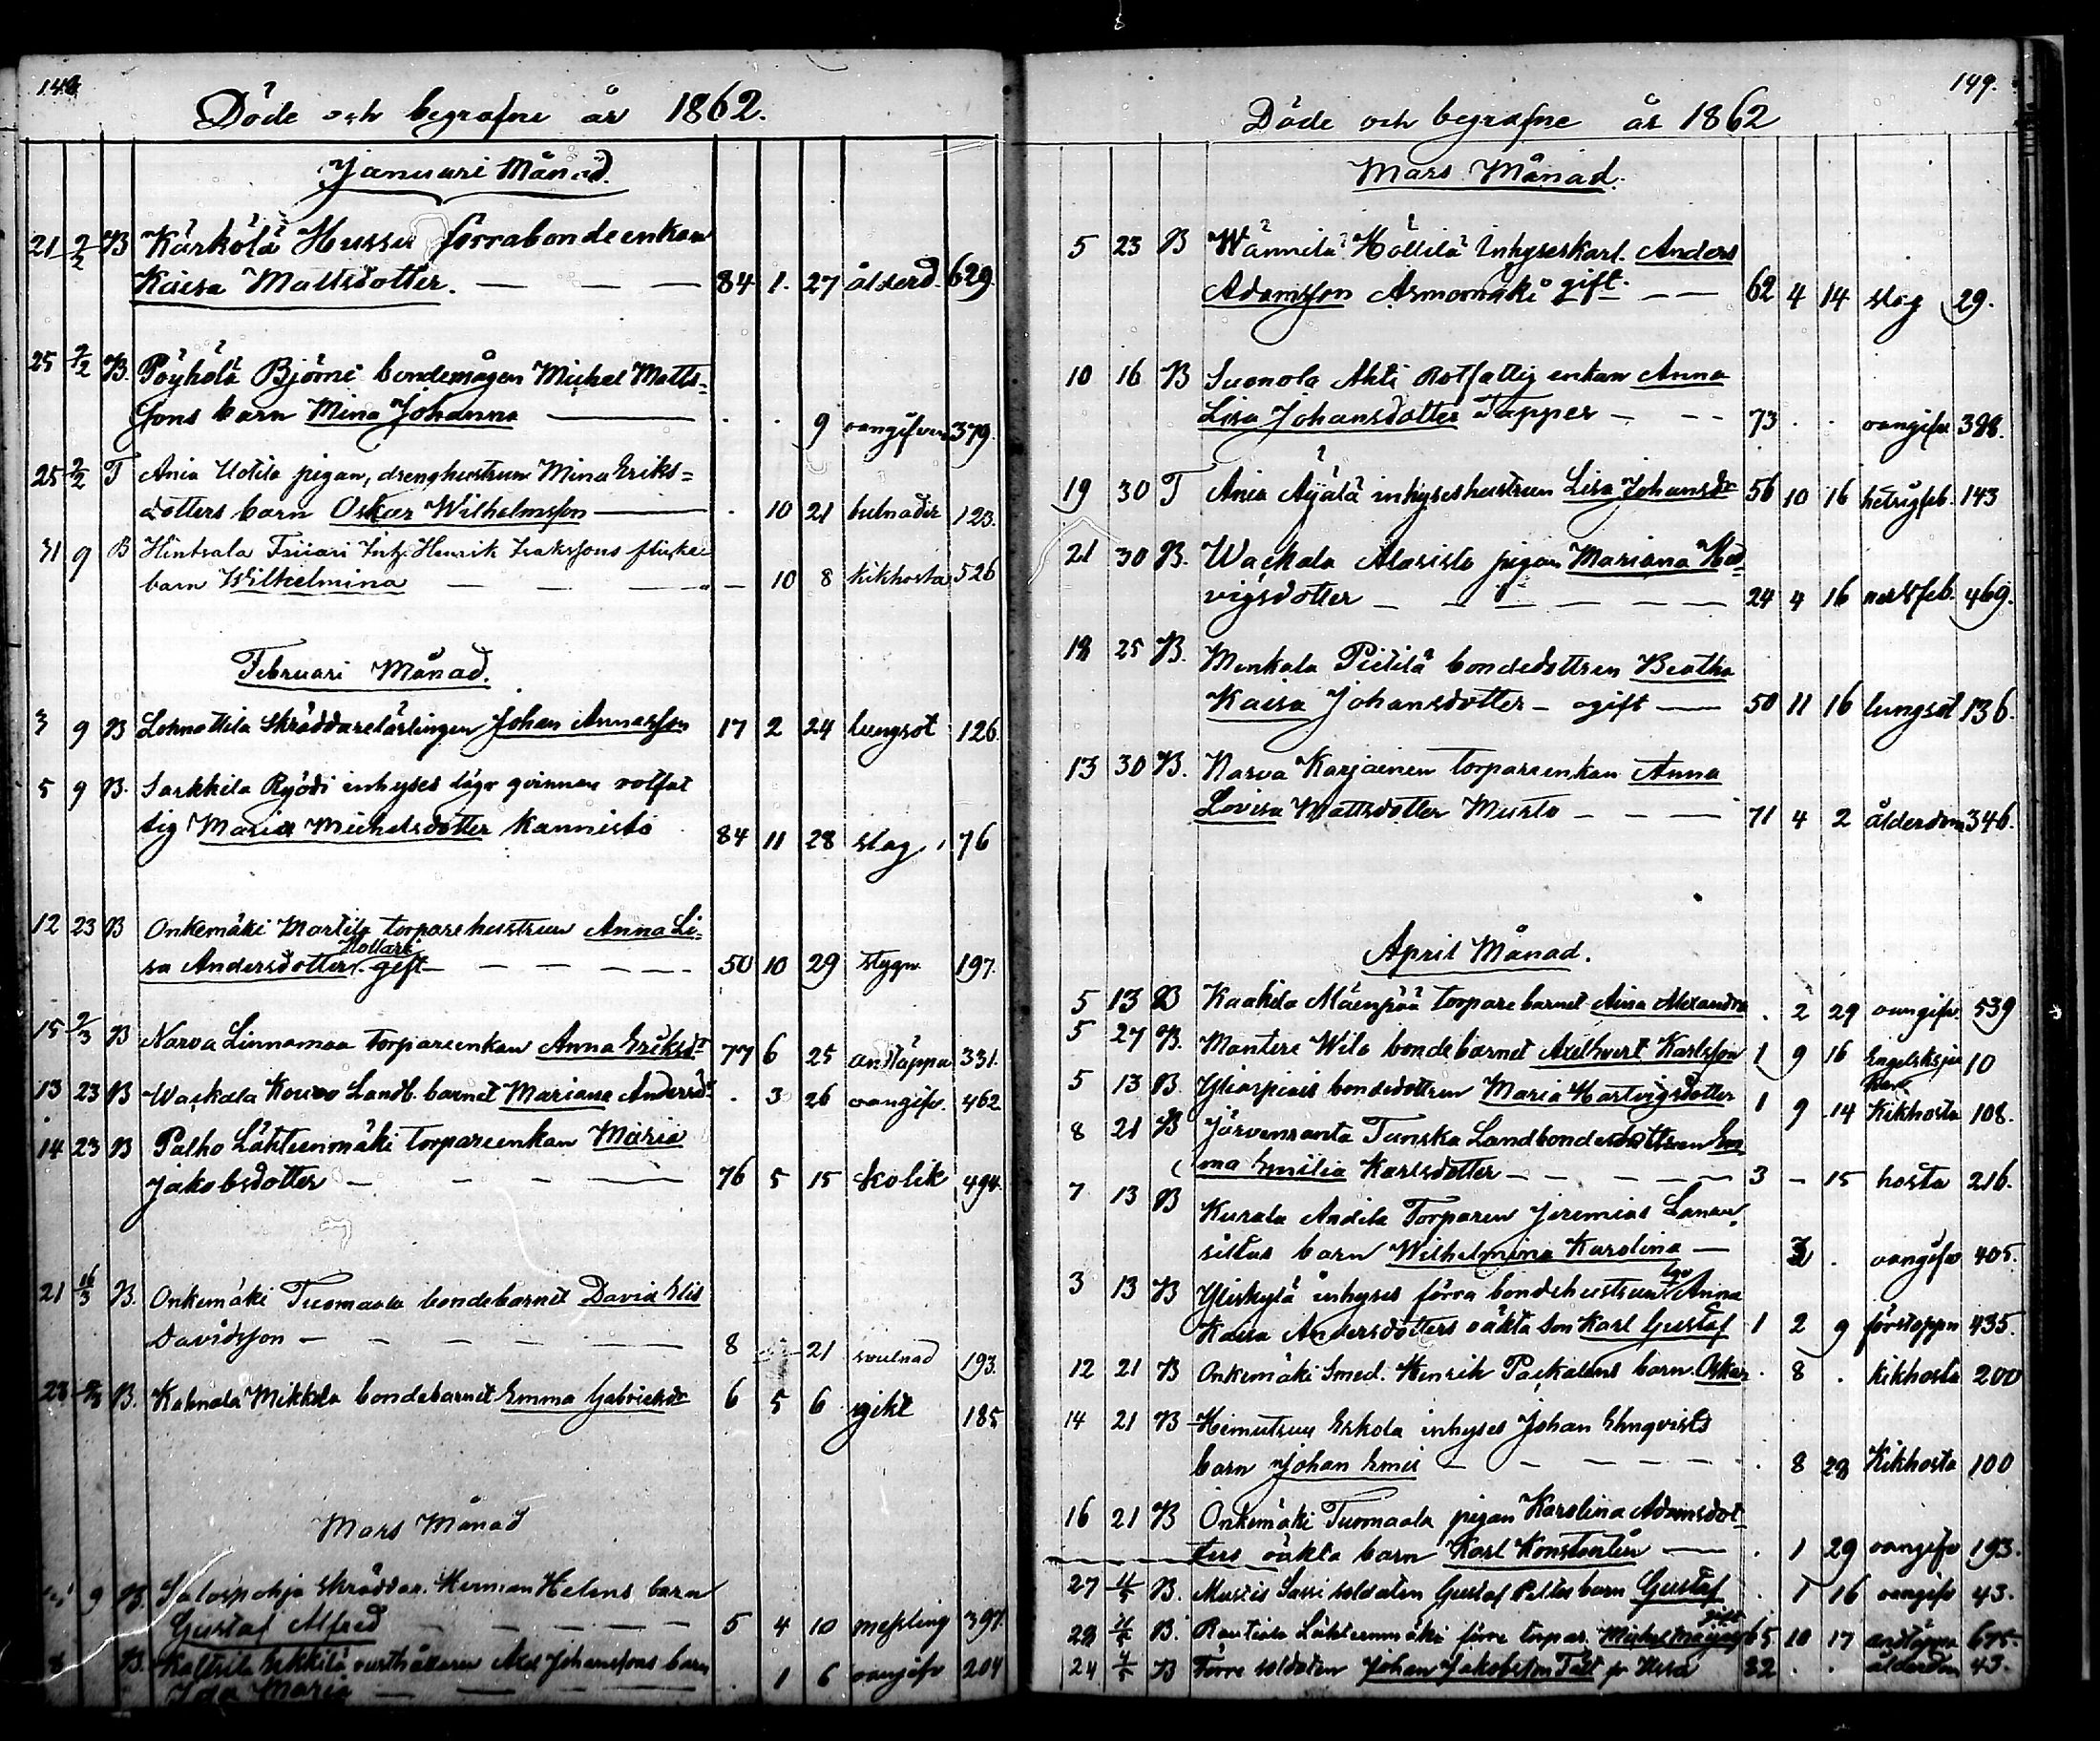 148
Döde och begrafne år 1862.
Januari Månad.
21 2/2 B Kärkölä Hussu förrabondeenkan
Kaisa Mattsdotter. — — — 84 1. 27 ålderd. 629.
25 2/2 B. Pöyhölä Björni bondemågen Michel Matts-
sons barn Mina Johanna — . . 9 oangifven 379.
25 2/2 T Ania Uotila pigan, drenghustrun Mina Eriks-
dotters barn Oskar Wilhelmsson — . 10 21 bulnader 123.
31 9 B Hintsala Friiari Inh. Henrik Isakssons flicke
barn Wilhelmina — — — — 10 8 kikhosta 526
Februari Månad.
3 9 B Lohnottila Skräddarelärlingen Johan Annasson 17 2 24 lungsot 126.
5 9 B. Sarkkila Ryödi inhyses lägr qvinnan rotfat
tig Maria Michelsdotter Kannisto 84 11 28 slag 76
12 23 B Onkemäki Martila torpare hustrun Anna Li-
Hollari
sa Andersdotter gift — — — — 50 10 29 stygn 197.
15 2/3 B Narva Linnamaa torpareenkan Anna Eriksdr 77 6 25 andtäppa 331.
13 23 B Wackala Kouvo Landb. barnet Mariana Andersdr . 3 26 oangifv. 462
14 23 B Palho Lähteenmäki torpareenkan Maria
Jakobsdotter — — — — 76 5 15 Kolik 494.
21 16/3 B. Onkemäki Tuomaala bondebarnet David Elis
Davidsson — — — — — 8 21 svulnad 193.
23 2/3 B. Kahnala Mikkola bondebarnet Emma Gabrielsdr 6 5 6 gikt 185
Mars Månad
9 B. Salospohja Skräddar. Herman Helins barn
Gustaf Alfred — — — — 5 4 10 messling 397.
8 B. Kaltsila Erkkilä varthållaren Axel Johanssons barn
Ida Maria — — — . 1 6 oangifv 204
149.
Döde och begrafne år 1862
Mars Månad.
5 23 B Wännilä Höllilä Inhyseskarl. Anders
Adamsson Asmomäki gift. — — 62 4 14 slag 29.
10 16 B Suonola Ahti Rotfattig enkan Anna
Lisa Johansdotter Tapper — — — 73 . . oangifv 388.
19 30 T Ania Äyälä inhyseshustrun Lisa Johansdr 56 10 16 hetsigfeb. 143
21 30 B. Wackala Alasisto pigan Mariana Hed-
vigsdotter — — — — — — 24 4 16 nervfeb. 469.
18 25 B. Menkala Piitilä bondedottren Beatha
Kaisa Johansdotter — ogift — 50 11 16 lungsot 136.
13 30 B. Narva Karjainen torpareenkan Anna
Lovisa Mattsdotter Musto — — — 71 4 2 ålderdom 346.
April Månad.
5 13 B Kaakila Mäenpää torpare barnet Aina Alexandra . 2 29 oangifv. 539
5 27 B. Mantere Wilo bondebarnet Axelhvert Karlsson 1 9 16 Engelsksju
kan 10
5 13 B. Yliarpiais bondedottren Maria Hartvigsdotter 1 9 14 Kikhosta 108.
8 21 B Järvensanta Tunska Landbondedottren Em-
ma Emilia Karlsdotter — — — — 3 — 15 hosta 216.
7 13 B Kurala Andila Torparen Jeremias Lanan-
siltas barn Wilhelmina Karolina — 3 . oangifv 405.
3 13 B Yliskylä inhyses förra bondehustrun lgr Anna
Kaisa Andersdotters oäkta son Karl Gustaf 1 2 9 förstoppn 435.
12 21 B Onkemäki Smed. Henrik Packaléns barn. Oskar . 8 . kikhosta 200
14 21 B Heinutsuu Erkola inhyses Johan Elmqvists
barn Johan Emil — — — — — . 8 28 Kikhosta 100
16 21 B Onkemäki Tuomaala pigan Karolina Adamsdot-
ters oäkta barn Karl Konstantin — . 1 29 oangifv 193.
27 4/5 B. Mustis Sassi soldaten Gustaf Paltas barn Gustaf . 1 16 oangifv 43.
28 4/5 B. Rautiola Lähteenmäki förre torpar. gift 65 10 17 andtäppa 675.
24 4/5 B Förre soldaten Johan Jakobsson Tält 82 . . ålderdom 43.